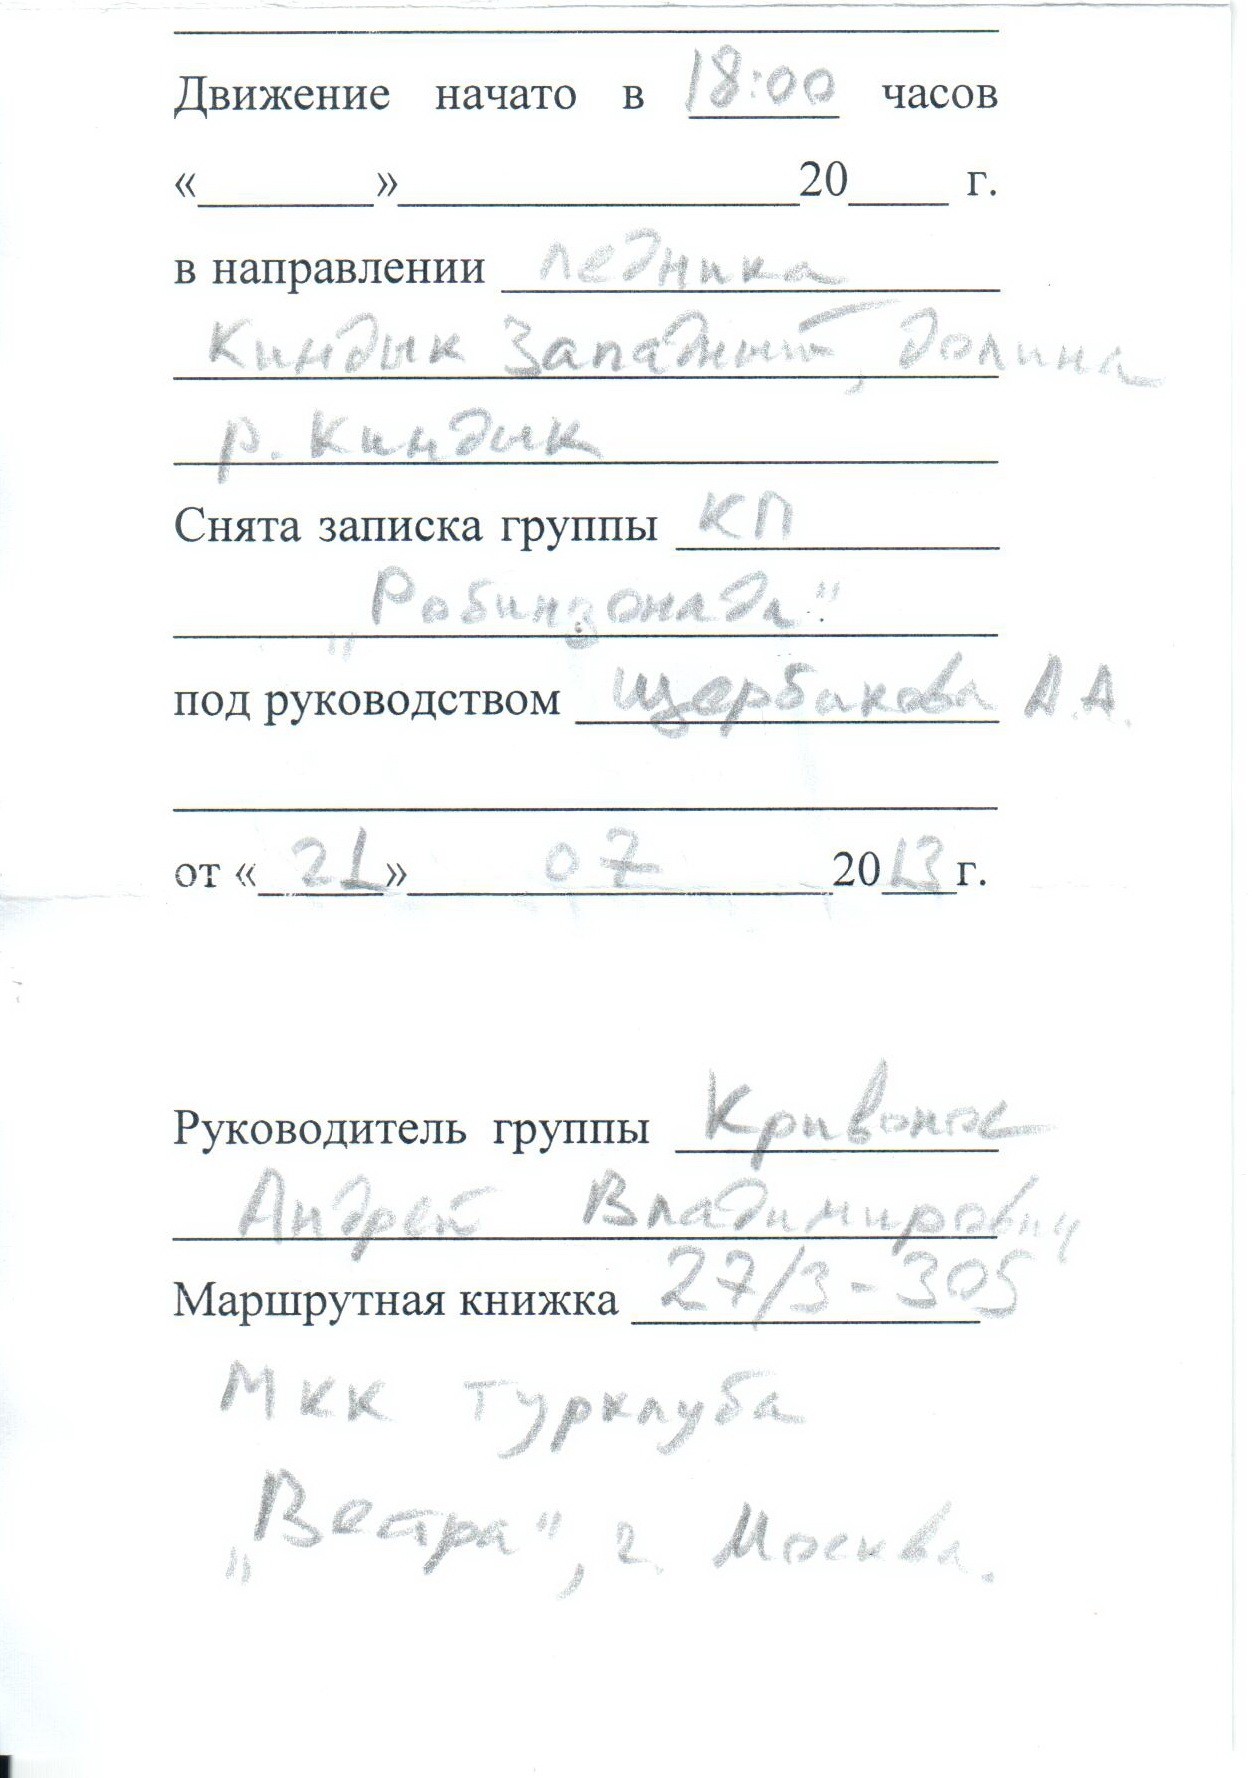 Движение начато в 18:00 часов
«_______»________________20____ г.
в направлении ледника
Киндык Западный, долина
р. Киндык
Снята записка группы КП
„Робинзонада“
под руководством Щербакова А.А.
от «21» 07 2013г.
Руководитель группы Кривонос
Андрей Владимирович
Маршрутная книжка 27/3-305
МКК турклуба
„Вестра“, г. Москва.